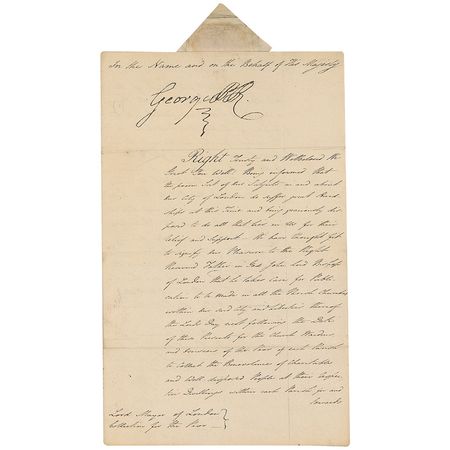 In the Name and on the Behalf of His Majesty
George P R
Right Trusty and Wellbeloved We
Greet you Well. Being informed that
the poorer Sort of Our Subjects in and about
Our City of London do suffer great Hard-
ships at this Time and being graciously dis-
posed to do all that lies in Us for their
Relief and Support. We have thought fit
to signify Our Pleasure to the Right
Reverend Father in God John Lord Bishop
of London that he takes care for Publi-
cation to be made in all the Parish Churches
within Our said City and Liberties thereof
the Lord's Day next following the Date
of these Presents for the Church Wardens
and Overseers of the Poor of each Parish
to collect the Benevolence of Charitable
and Well disposed People at their respec-
tive Dwellings within each Parish for and
towards
Lord Mayor of London
Collection for the Poor